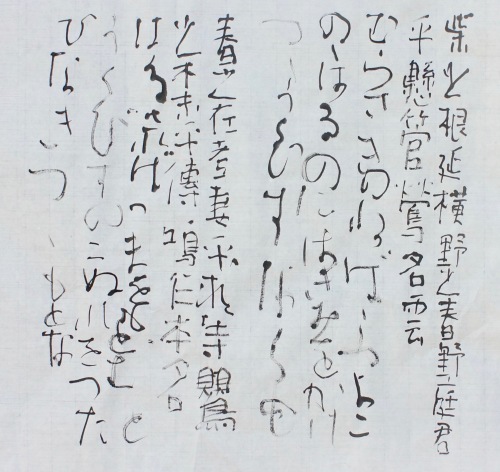 紫之根延横野之春野庭君
乎懸管鶯名雲
むらさきのねばふよこ
のゝはるのにはきみをかけ
つゝうぐひすなくも
春之在者妻乎求等鶯
之木末乎傳鳴乍本名
はるさればつまをもとむと
うぐひすのこぬれをつた
ひなきつゝもとな